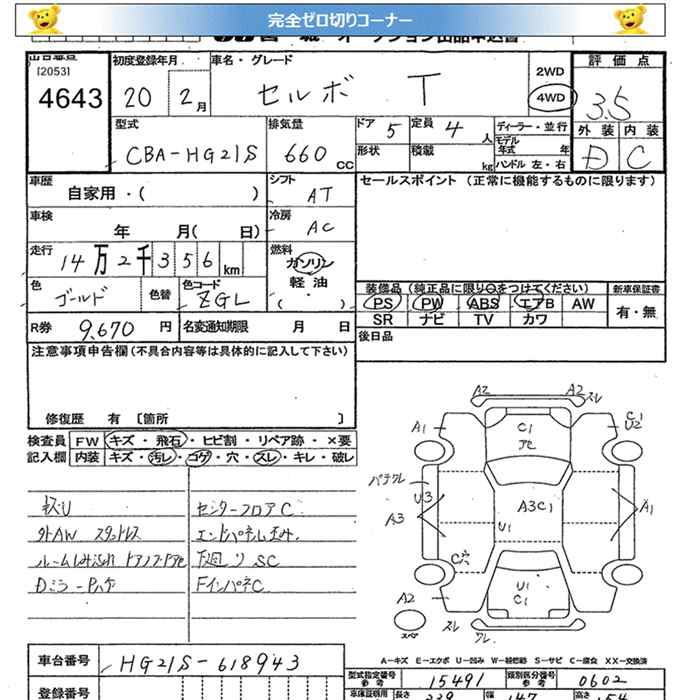 完全ゼロ切りコーナー
[2053]
4643
初度登録年月
20 2月
車名・グレード
セルボ T
2WD
4WD
評価点
3.5
外装 内装
D C
型式
CBA-HG21S
排気量
660 CC
ドア 5
定員 4 人
形状
積載 kg
ディーラー・並行
モデル年式 年
ハンドル 左・右
車歴
自家用・( )
シフト
AT
セールスポイント (正常に機能するものに限ります)
車検
年 月( 日)
冷房
AC
走行
14万2千356km
燃料
ガソリン
軽油
・( )
色
ゴールド
色替
色コード
ZGL
装備品 (純正品に限り○をつけてください)
新車保証書
PS PW ABS エアB AW
SR ナビ TV カワ
有・無
R券 9,670 円
名変通知期限 月 日
後日品
注意事項申告欄(不具合内容等は具体的に記入して下さい)
修復歴 有 [箇所 ]
検査員記入欄
FW キズ・飛石・ヒビ割・リペア跡・×要
内装 キズ・汚レ・コゲ・穴・スレ・キレ・破レ
外AW スタッドレス
センターフロアC
下廻りSC
FインパネC
A2 A2 スレ
A1
C1
C1
U2
U3
A3
A3C1
U1
A1
C穴
U1
C1
A2
スレ
A-キズ E-エクボ U-凹み W-補修跡 S-サビ C-腐食 XX-交換済
車台番号
HG21S-618943
登録番号
型式指定番号 参考
15491
類別区分番号 参考
0602
長さ
339
幅
147
高さ